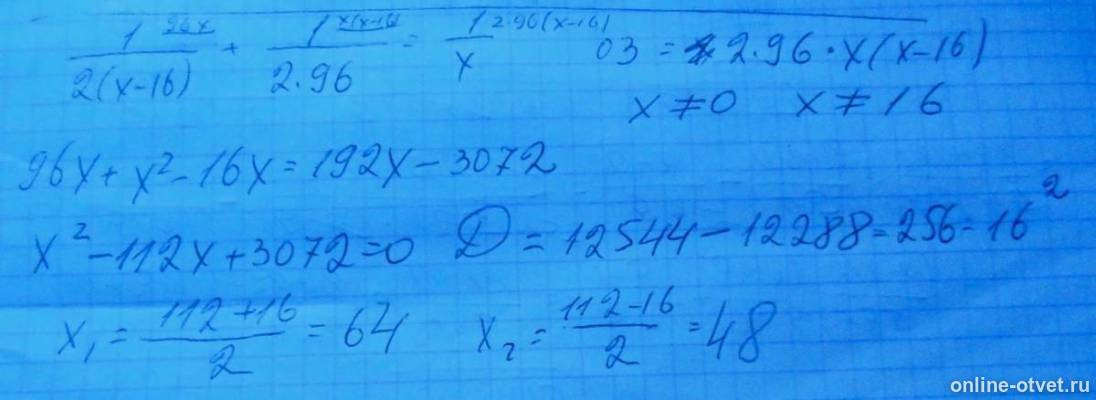 1/2(x-16) ^96x + 1/2·96 ^x(x-16) = 1/x ^2·96(x-16) ОЗ = 2·96·x(x-16)
x≠0 x≠16
96x+x²-16x=192x-3072
x²-112x+3072=0 D=12544-12288=256=16²
x₁=112+16/2=64 x₂=112-16/2=48
online-otvet.ru